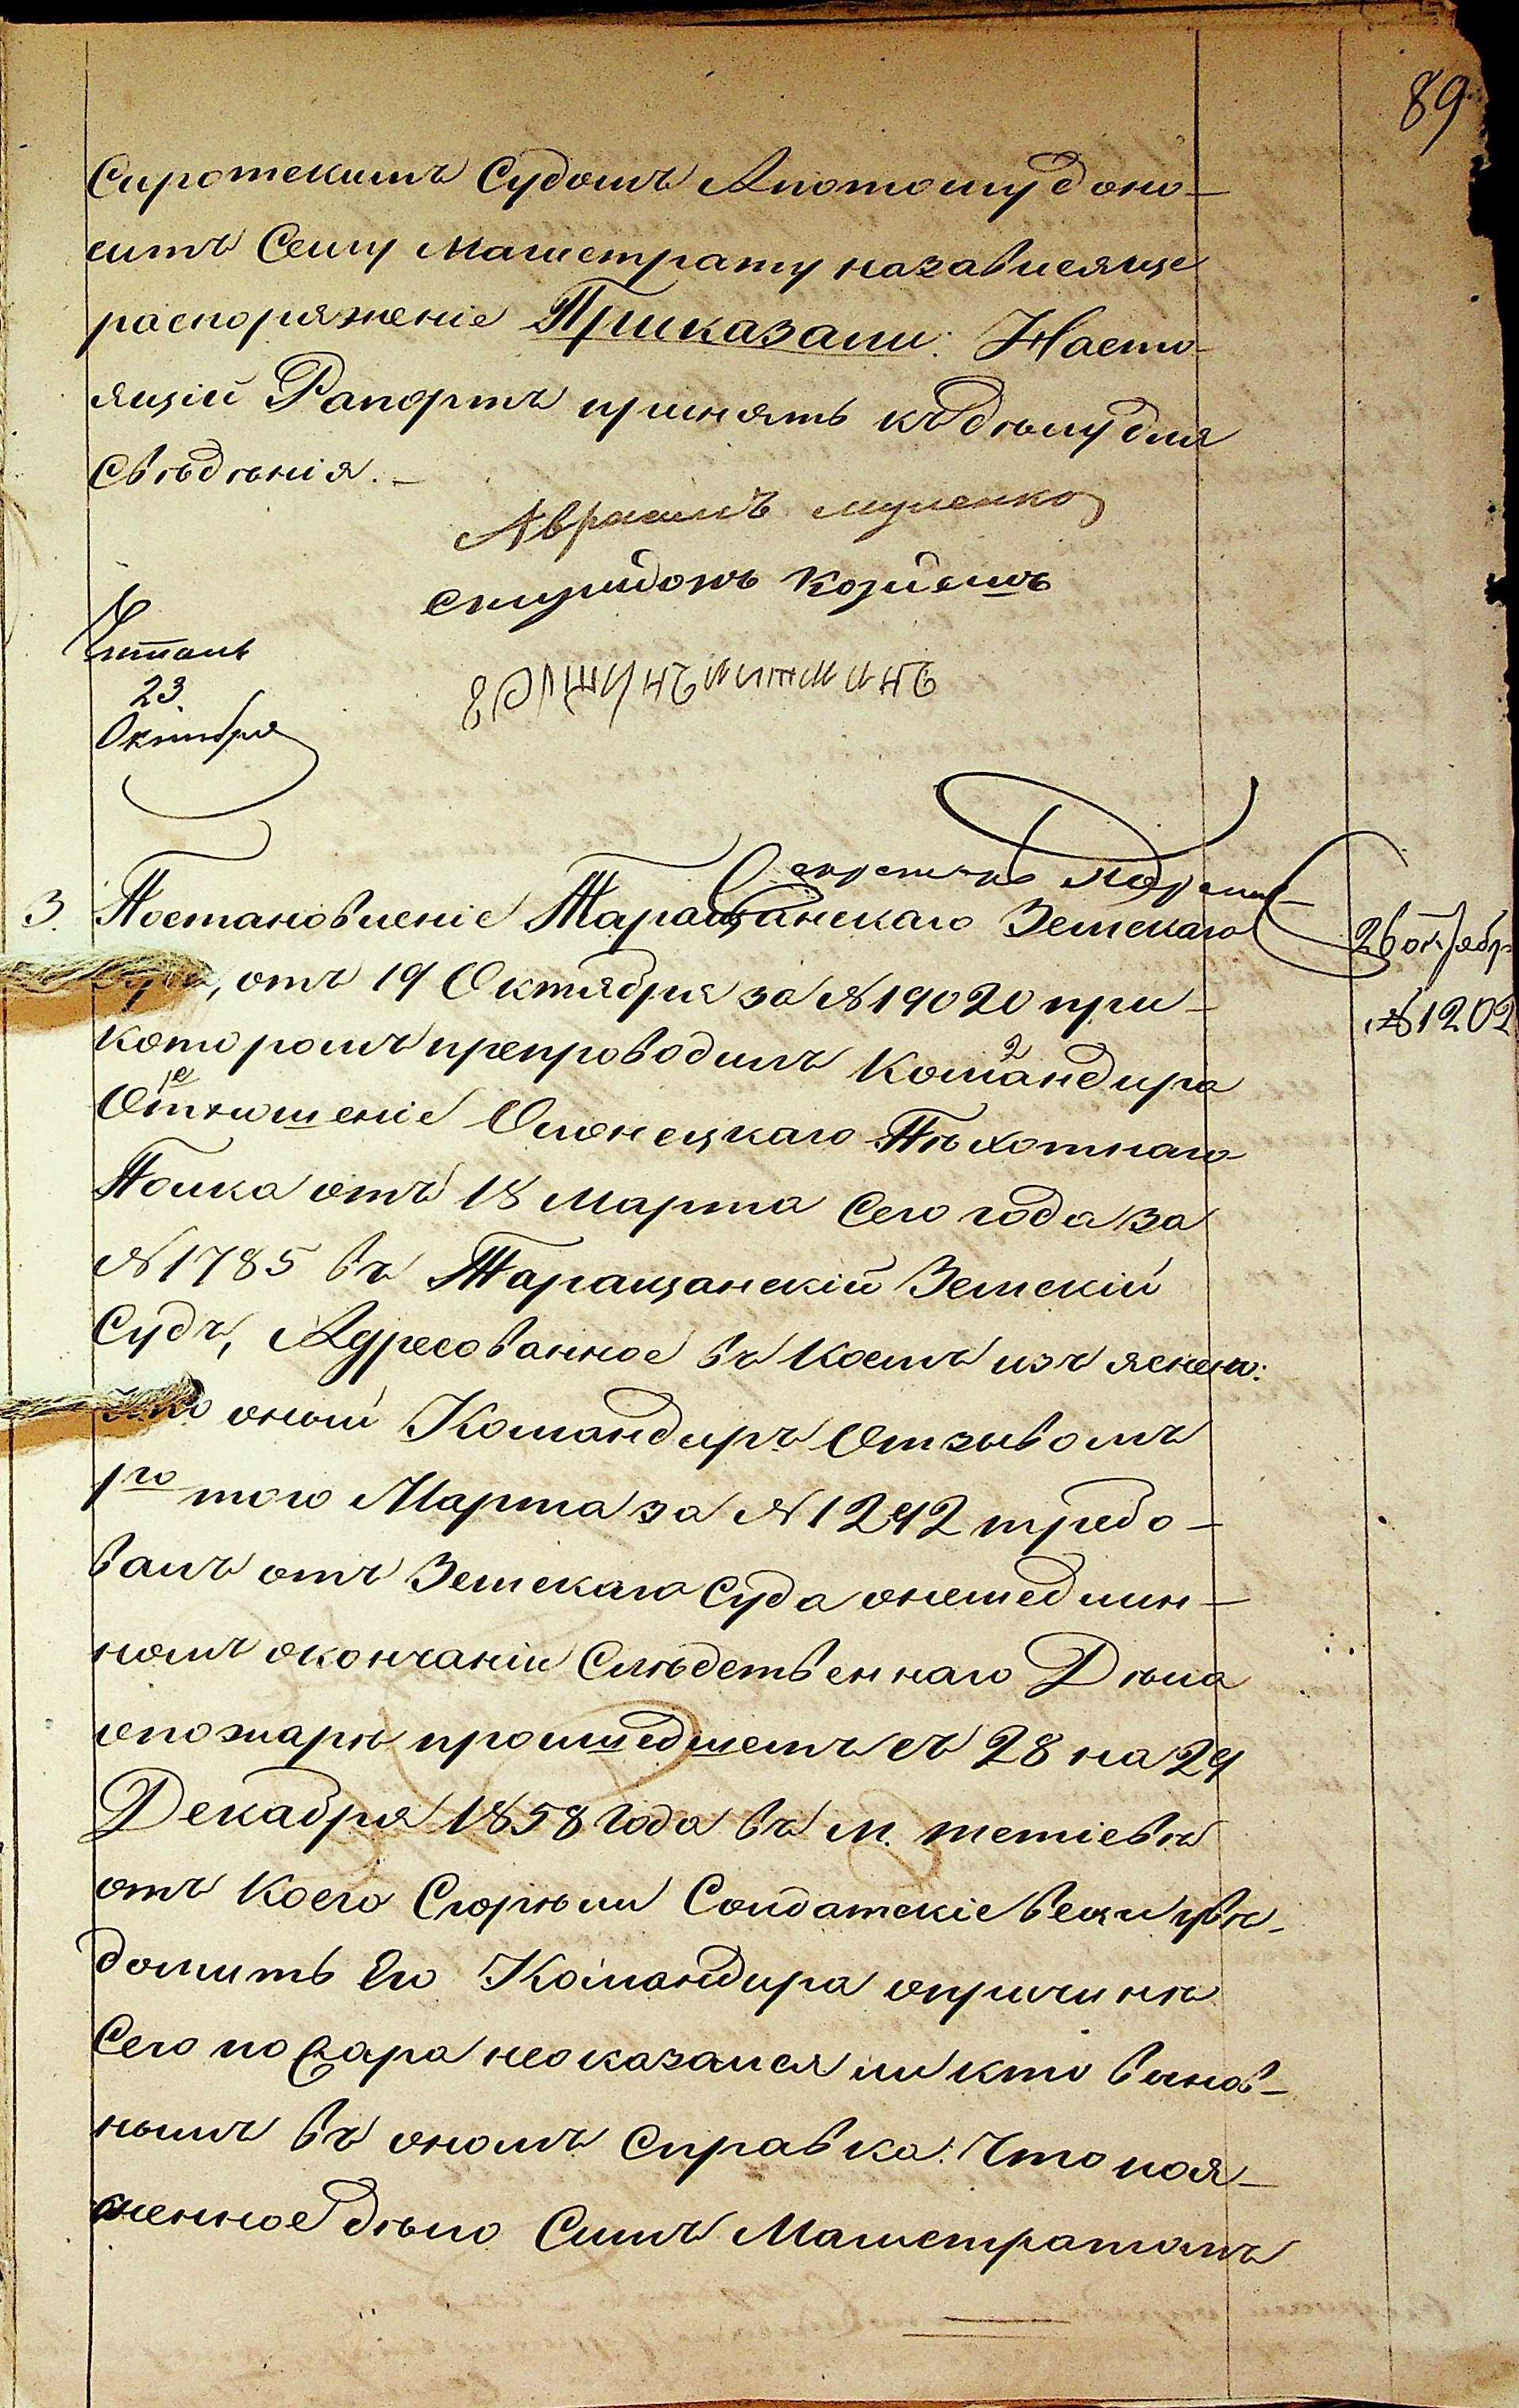 89
Сиротскимъ Судомъ Апотому доно-
ситъ Сему Магистрату назависяще
распоряженіе Приказали: Насто-
ящій Рапортъ принять къ дѣлу для
свѣдѣнія. –
Авраамъ
Спиридонъ
Читалъ
23
Октября
Секретарь
3. Постановленіе Таращанскаго Земскаго
26 октябр
Суда, отъ 19 Октября за №19020 при-
№1202
которомъ препроводилъ Командира 2
Отношеніе 1е Олонецкаго Пѣхотнаго
Полка отъ 18 Марта Сего года за
№1785 въ Таращанскій Земскій
Судъ, Адресованное въ коемъ изъяснено:
что оный Командиръ Отзывомъ
1го того Марта за №1242 требо-
валъ отъ Земскаго Суда онемедлен-
номъ окончаніи Слѣдственнаго Дѣла
опожарѣ прошедшемъ съ 28 на 29
Декабря 1858 года въ м. тетіевѣ
отъ коего Сгорѣли Солдатскіе вещи увѣ-
домить Его Командира опричинѣ
Сего пожара неоказался ли кто винов-
нымъ въ ономъ Справка: Что поя-
сненное дѣло Симъ Магистратомъ